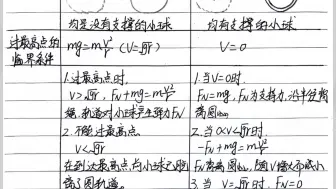 均是没有支撑的小球
均有支撑的小球
过最高点的
临界条件
mg=m v²/r (V=√gr)
V=0
1.过最高点时,
V>√gr, FN+mg=m v²/r
绳、轨道对小球产生弹力FN
2.不能过最高点
V<√gr
在到达最高点前小球已脱
离了圆轨道。
1.当V=0时
FN=mg, FN为支持力,沿半径背
离圆心
2.当0<V<√gr时
-FN+mg=m v²/r
FN背离圆心,随V增大而减小
3.当V=√gr时, FN=0